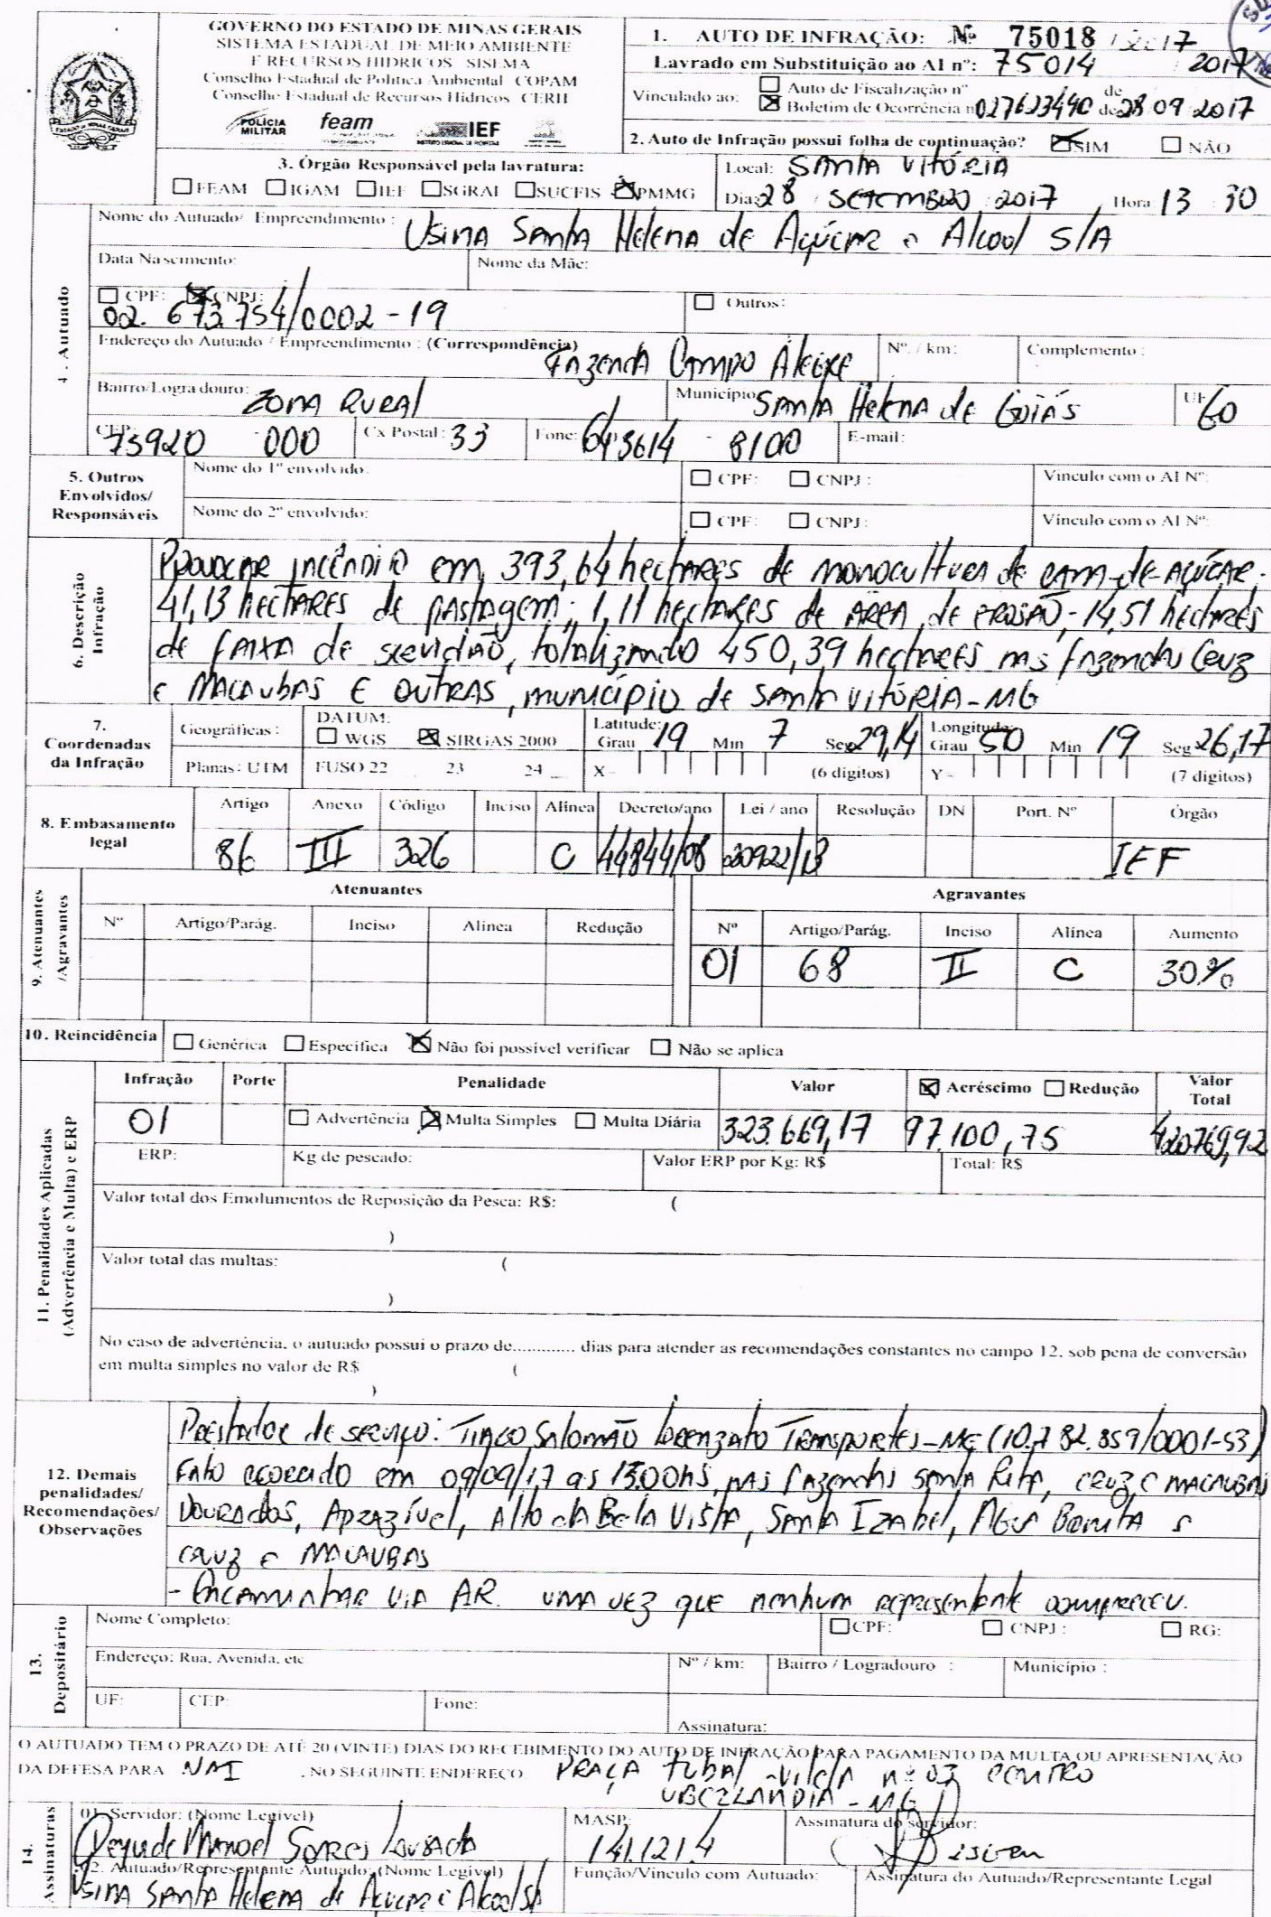 GOVERNO DO ESTADO DE MINAS GERAIS
SISTEMA ESTADUAL DE MEIO AMBIENTE
E RECURSOS HIDRICOS SISEMA
Conselho Estadual de Política Ambiental COPAM
Conselho Estadual de Recursos Hídricos CERH
POLÍCIA MILITAR feam IEF
1. AUTO DE INFRAÇÃO: Nº 75018 / 2017
Lavrado em Substituição ao AI nº: 75014 2017
Vinculado ao: Auto de Fiscalização nº de
Boletim de Ocorrência nº 027623490 de 28 09 2017
2. Auto de Infração possui folha de continuação? SIM NÃO
3. Órgão Responsável pela lavratura:
FEAM IGAM IEF SGRAI SUCFIS PMMG
Local: SANTA VITÓRIA
Dia: 28 / SETEMBRO 2017 Hora 13 : 30
4. Autuado
Nome do Autuado/ Empreendimento: Usina Santa Helena de Açúcar e Alcool S/A
Data Nascimento: Nome da Mãe:
CPF: CNPJ: Outros:
02.673.754/0002-19
Endereço do Autuado / Empreendimento: (Correspondência) Fazenda Campo Alegre Nº. / km: Complemento:
Bairro/Logradouro: Zona Rural Município: Santa Helena de Goiás UF: GO
CEP: 75920 - 000 Cx Postal: 33 Fone: 64 3614 - 8100 E-mail:
5. Outros Envolvidos/ Responsáveis
Nome do 1º envolvido: CPF: CNPJ: Vínculo com o AI Nº:
Nome do 2º envolvido: CPF: CNPJ: Vínculo com o AI Nº:
6. Descrição Infração
Provocar incêndio em 393,64 hectares de monocultura de cana-de-açúcar.
41,13 hectares de pastagem; 1,11 hectares de área de erosão - 14,51 hectares
de faixa de servidão, totalizando 450,39 hectares nas fazendas Cruz
e Macaubas e outras, município de Santa Vitória-MG
7. Coordenadas da Infração
Geográficas: DATUM: WGS SIRGAS 2000 Latitude: Grau 19 Min 7 Seg 29,14 Longitude: Grau 50 Min 19 Seg 26,17
Planas: UTM FUSO 22 23 24 X - (6 dígitos) Y - (7 dígitos)
8. Embasamento legal
Artigo Anexo Código Inciso Alínea Decreto/ano Lei / ano Resolução DN Port. Nº Órgão
86 III 326 C 44844/08 20922/13 IEF
9. Atenuantes /Agravantes
Atenuantes Agravantes
Nº Artigo/Parág. Inciso Alínea Redução Nº Artigo/Parág. Inciso Alínea Aumento
01 68 II C 30%
10. Reincidência Genérica Específica Não foi possível verificar Não se aplica
11. Penalidades Aplicadas (Advertência e Multa) e ERP
Infração Porte Penalidade Valor Acréscimo Redução Valor Total
01 Advertência Multa Simples Multa Diária 323.669,17 97.100,75 420769,92
ERP: Kg de pescado: Valor ERP por Kg: R$ Total: R$
Valor total dos Emolumentos de Reposição da Pesca: R$: (
)
Valor total das multas: (
)
No caso de advertência, o autuado possui o prazo de............ dias para atender as recomendações constantes no campo 12, sob pena de conversão
em multa simples no valor de R$ (
)
12. Demais penalidades/ Recomendações/ Observações
Prestador de serviço: Tiago Salomão Lorenzato Transportes-ME (10.782.859/0001-53)
Fato ocorrido em 09/09/17 as 15:00hs, nas fazendas Santa Rita, Cruz e Macaubas
Dourados, Aprazível, Alto da Bela Vista, Santa Izabel, Água Bonita e
Cruz e Macaubas
- Encaminhar via AR. uma vez que nenhum representante compareceu.
13. Depositário
Nome Completo: CPF: CNPJ: RG:
Endereço: Rua, Avenida, etc Nº / km: Bairro / Logradouro : Município :
UF: CEP: Fone: Assinatura:
O AUTUADO TEM O PRAZO DE ATÉ 20 (VINTE) DIAS DO RECEBIMENTO DO AUTO DE INFRAÇÃO PARA PAGAMENTO DA MULTA OU APRESENTAÇÃO
DA DEFESA PARA NAI , NO SEGUINTE ENDEREÇO PRAÇA Tubal Vilela nº 03 CENTRO
UBERLANDIA - MG
14. Assinaturas
01. Servidor: (Nome Legível) MASP: Assinatura do servidor:
Manoel Soares 141.121.4
2. Autuado/Representante Autuado: (Nome Legível) Função/Vínculo com Autuado: Assinatura do Autuado/Representante Legal
Usina Santa Helena de Açucar e Alcool S/A